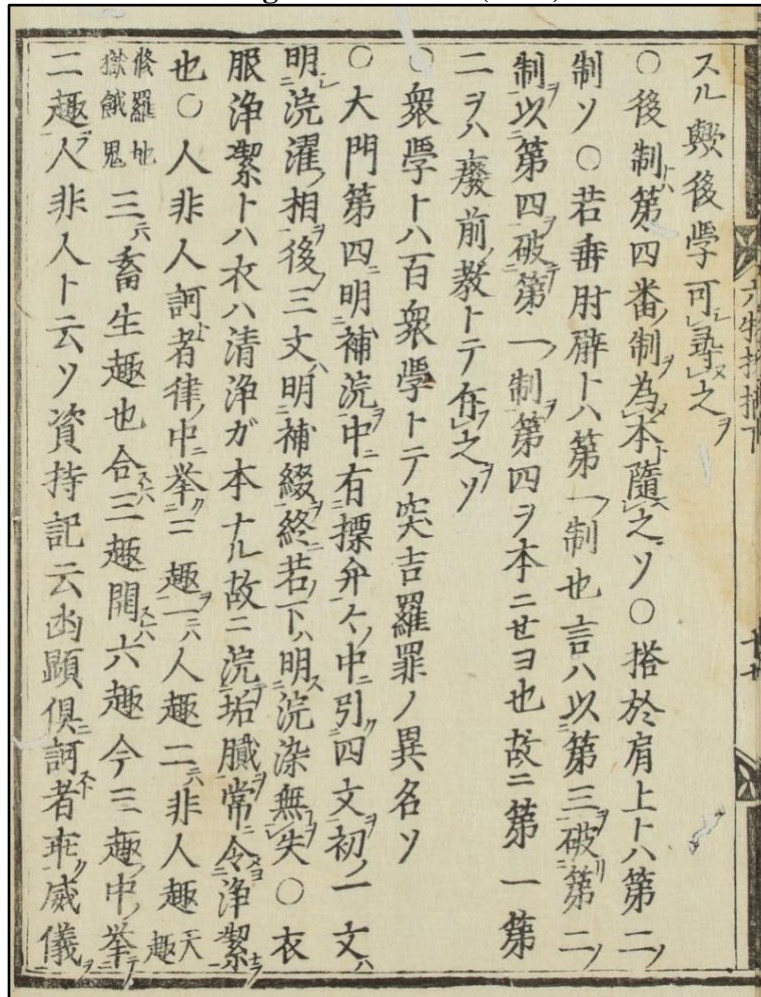 スル歟後学可レ尋レ之ヲ
○後制ハ第四番ノ制ヲ為メ本ト隨レ之ソ○搭於肩上トハ第二ノ
制ソ○若垂肘臂トハ第一ノ制也言ハ以第三ヲ破リ第二ノ
制ヲ以第四ヲ破第一ノ制ヲ第四ヲ本ニセヨ也故ニ第一第
二ヲハ廢前ノ教トテ存之ソ
○衆学トハ百衆学トテ突吉羅罪ノ異名ソ
○大門第四ニ明補浣ヲ中ニ有標弁今ノ中ニ引ク四文ヲ初ノ一文ハ
明浣濯ノ相ヲ後ノ三文ハ明補綴ヲ終ニ若ノ下ハ明ス浣染無レ失○衣
服浄絜トハ衣ハ清浄ガ本ナル故ニ浣垢膩ヲ常ニ令浄絜ナラ
也○人非人訶者律ノ中ニ挙ク二趣ヲ一ハ人趣二ハ非人趣天趣
修羅地獄餓鬼三ハ畜生趣也合三趣開六趣今三趣ノ中ニ挙テ
二趣ヲ人非人ト云ソ資持記云幽顕倶ニ訶者乖ク威儀ヲ
六物